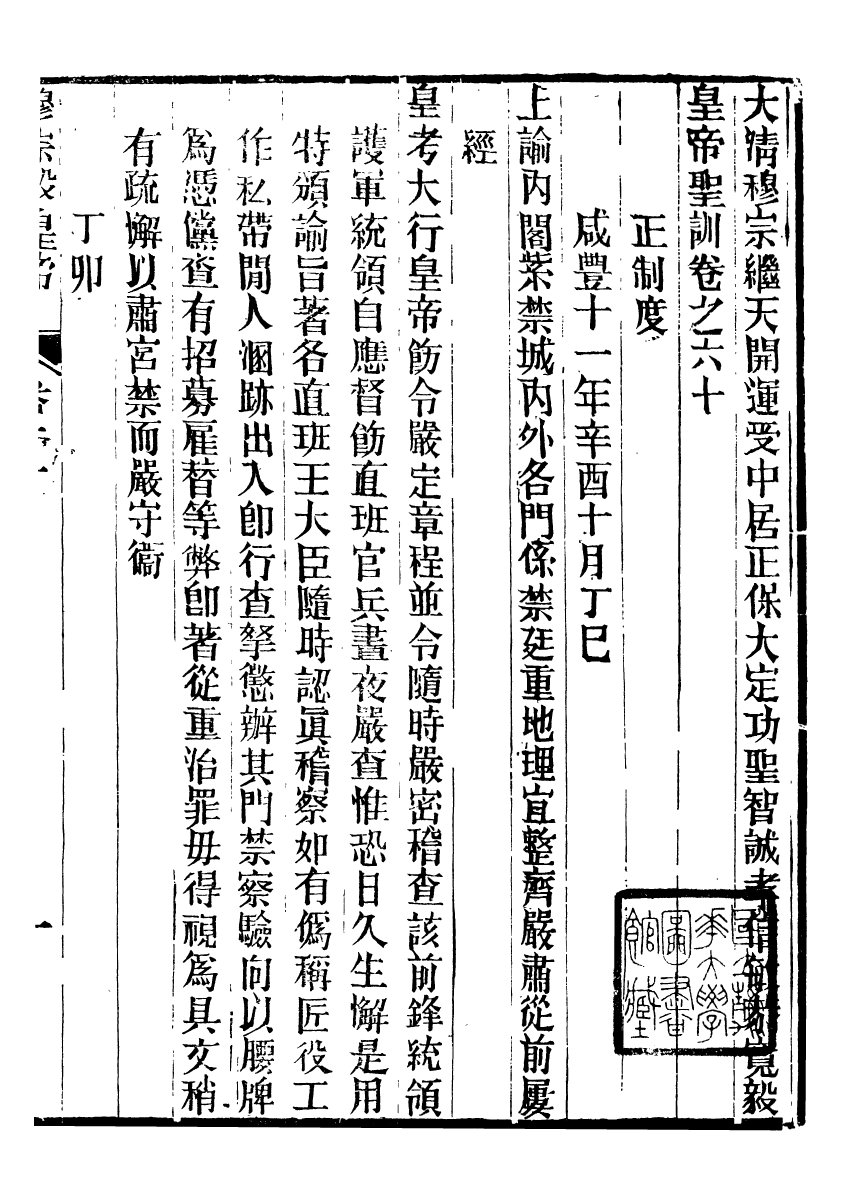 大清穆宗繼天開運受中居正保大定功聖智誠孝信敏恭寬毅
皇帝聖訓卷之六十
正制度
咸豐十一年辛酉十月丁巳
上諭內閣紫禁城內外各門係禁廷重地理宜整齊嚴肅從前屢
經
皇考大行皇帝飭令嚴定章程並令隨時嚴密稽查該前鋒統領
護軍統領自應督飭直班官兵晝夜嚴查惟恐日久生懈是用
特頒諭旨著各直班王大臣隨時認眞稽察如有僞稱匠役工
作私帶閒人溷跡出入卽行查拏懲辦其門禁察驗向以腰牌
爲憑儻查有招募雇替等弊卽著從重治罪毋得視爲具文稍
有疏懈以肅宮禁而嚴守衞
丁卯
穆宗毅皇帝
一
國立清華大學圖書館藏